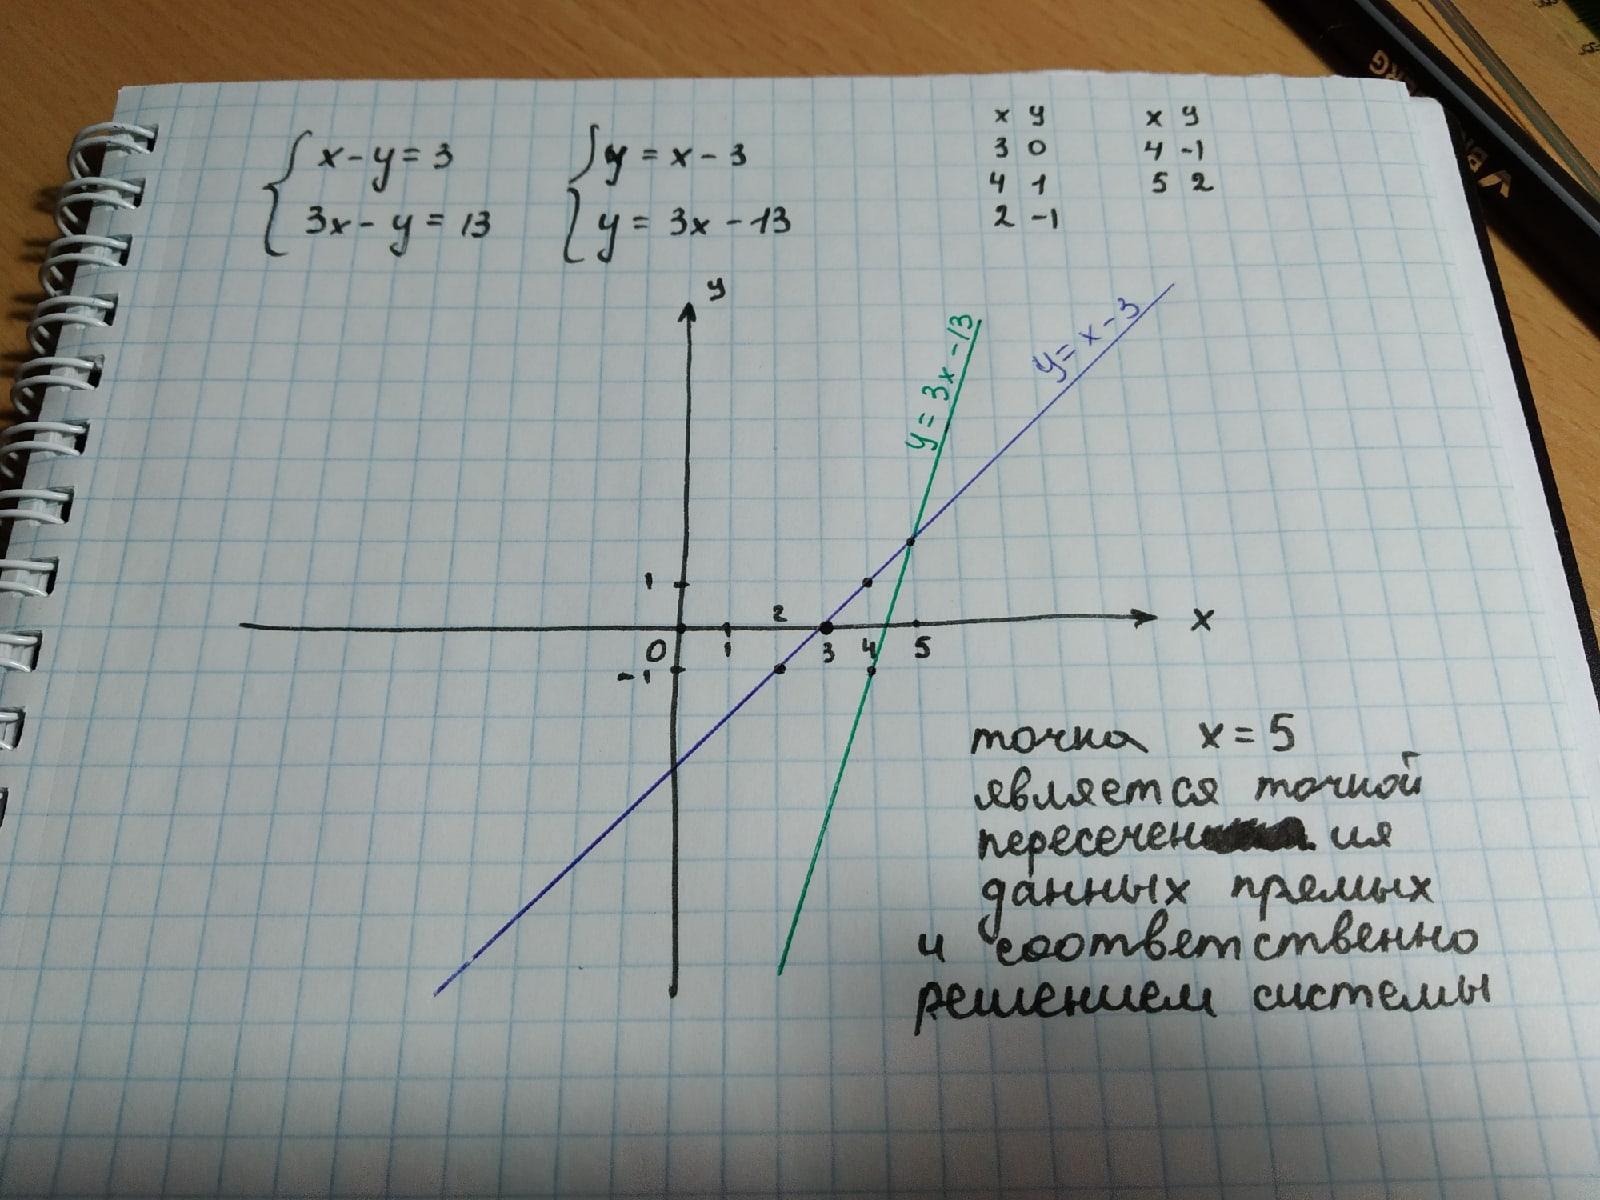 x - y = 3
3x - y = 13
y = x - 3
y = 3x - 13
x y
3 0
4 1
2 -1
x y
4 -1
5 2
y
y = 3x - 13
y = x - 3
1
2
x
0 1 3 4 5
-1
точка x = 5
является точкой
пересечен ия
данных прямых
и соответственно
решением системы